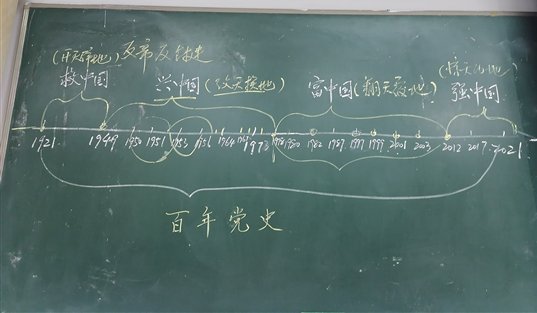 (开天辟地) 反帝反封建 (惊天动地)
救中国 兴中国 (改天换地) 富中国 (翻天覆地) 强中国
1921 1949 1950 1951 1953 1964 1973 1978 1980 1982 1987 1999 2001 2003 2012 2017 2021
百年党史